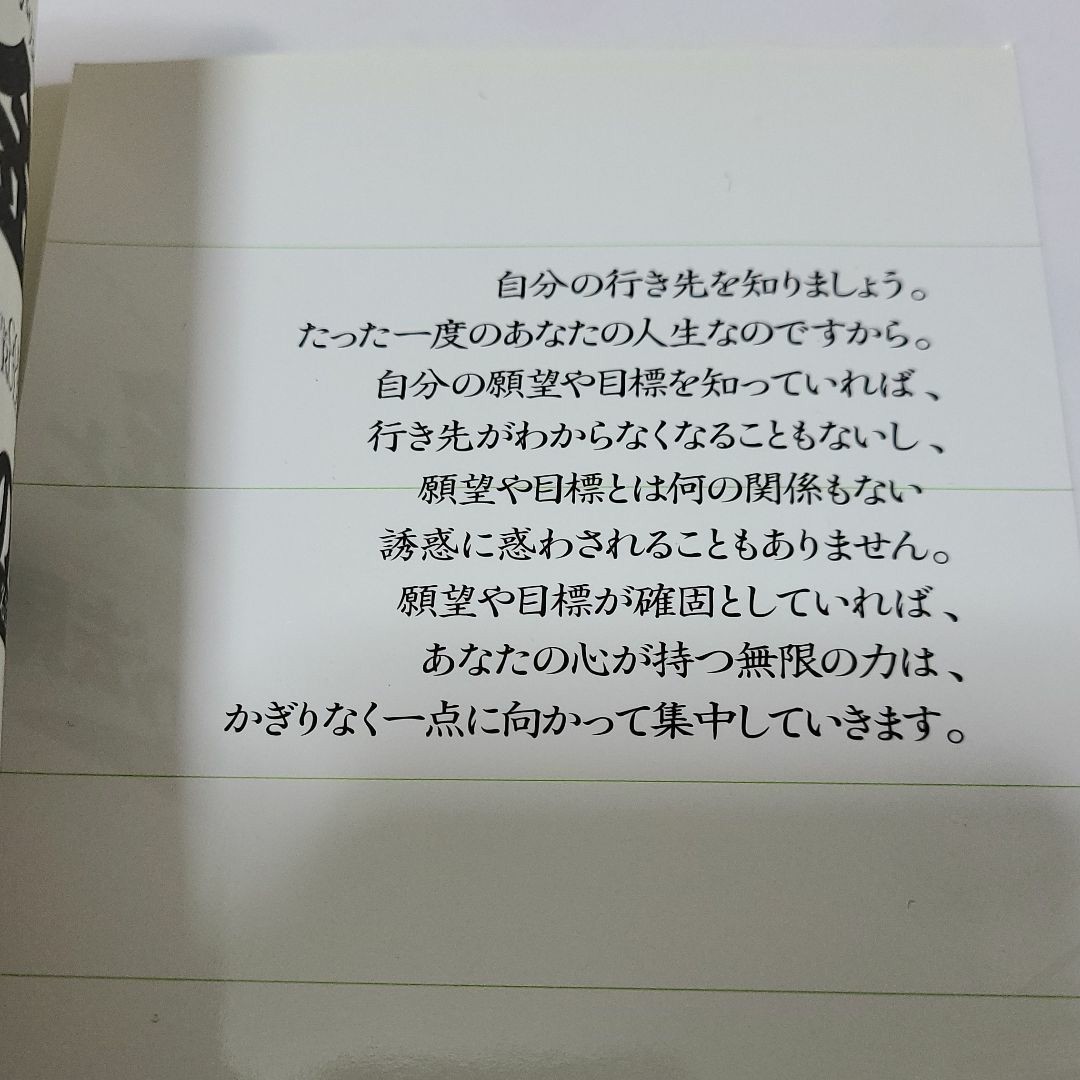 自分の行き先を知りましょう。
たった一度のあなたの人生なのですから。
自分の願望や目標を知っていれば、
行き先がわからなくなることもないし、
願望や目標とは何の関係もない
誘惑に惑わされることもありません。
願望や目標が確固としていれば、
あなたの心が持つ無限の力は、
かぎりなく一点に向かって集中していきます。